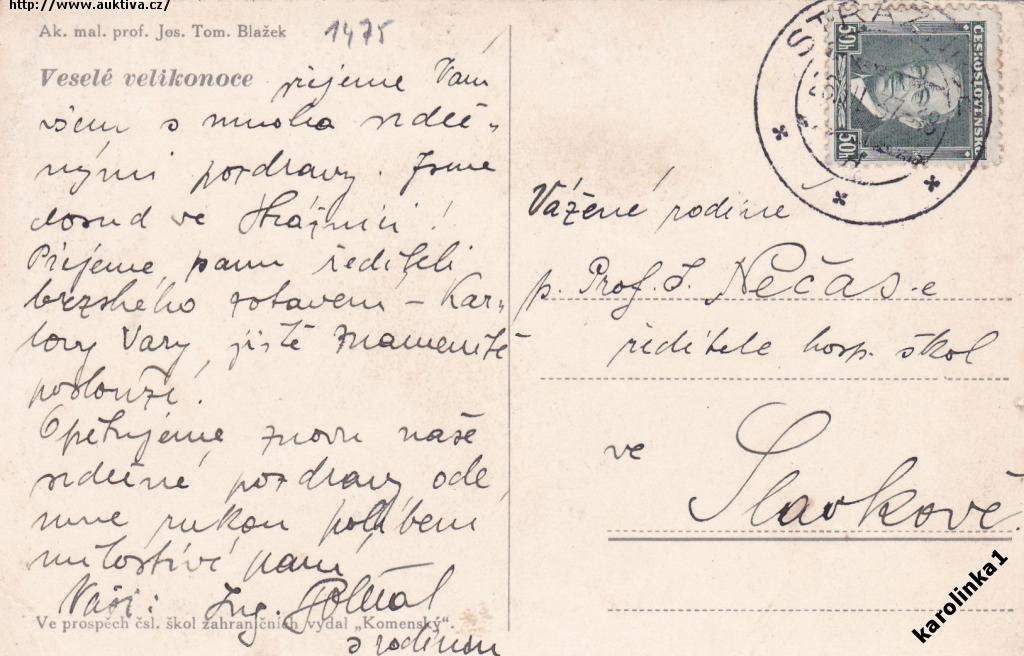 http://www.auktiva.cz/
Ak. mal. prof. Jos. Tom. Blažek
1475
Veselé velikonoce
přejeme Vám
všem s mnoha srdeč-
nými pozdravy. Jsme
dosud ve Strážnici!
Přejeme, panu řediteli
brzského zotavení – Kar-
lovy Vary, jistě znamenitě
poslouží!
Opětujeme znovu naše
srdečné pozdravy ode
mne rukou políbení
milostivé paní
Vaši: Ing.
s rodinou
Ve prospěch čsl. škol zahraničních vydal „Komenský“.
STRÁŽ
ČESKOSLOVENSKO
50h
50h
Vážené rodině
p. Prof. J. Nečas-e
ředitele hosp. škol
ve
Slavkově.
karolinka1